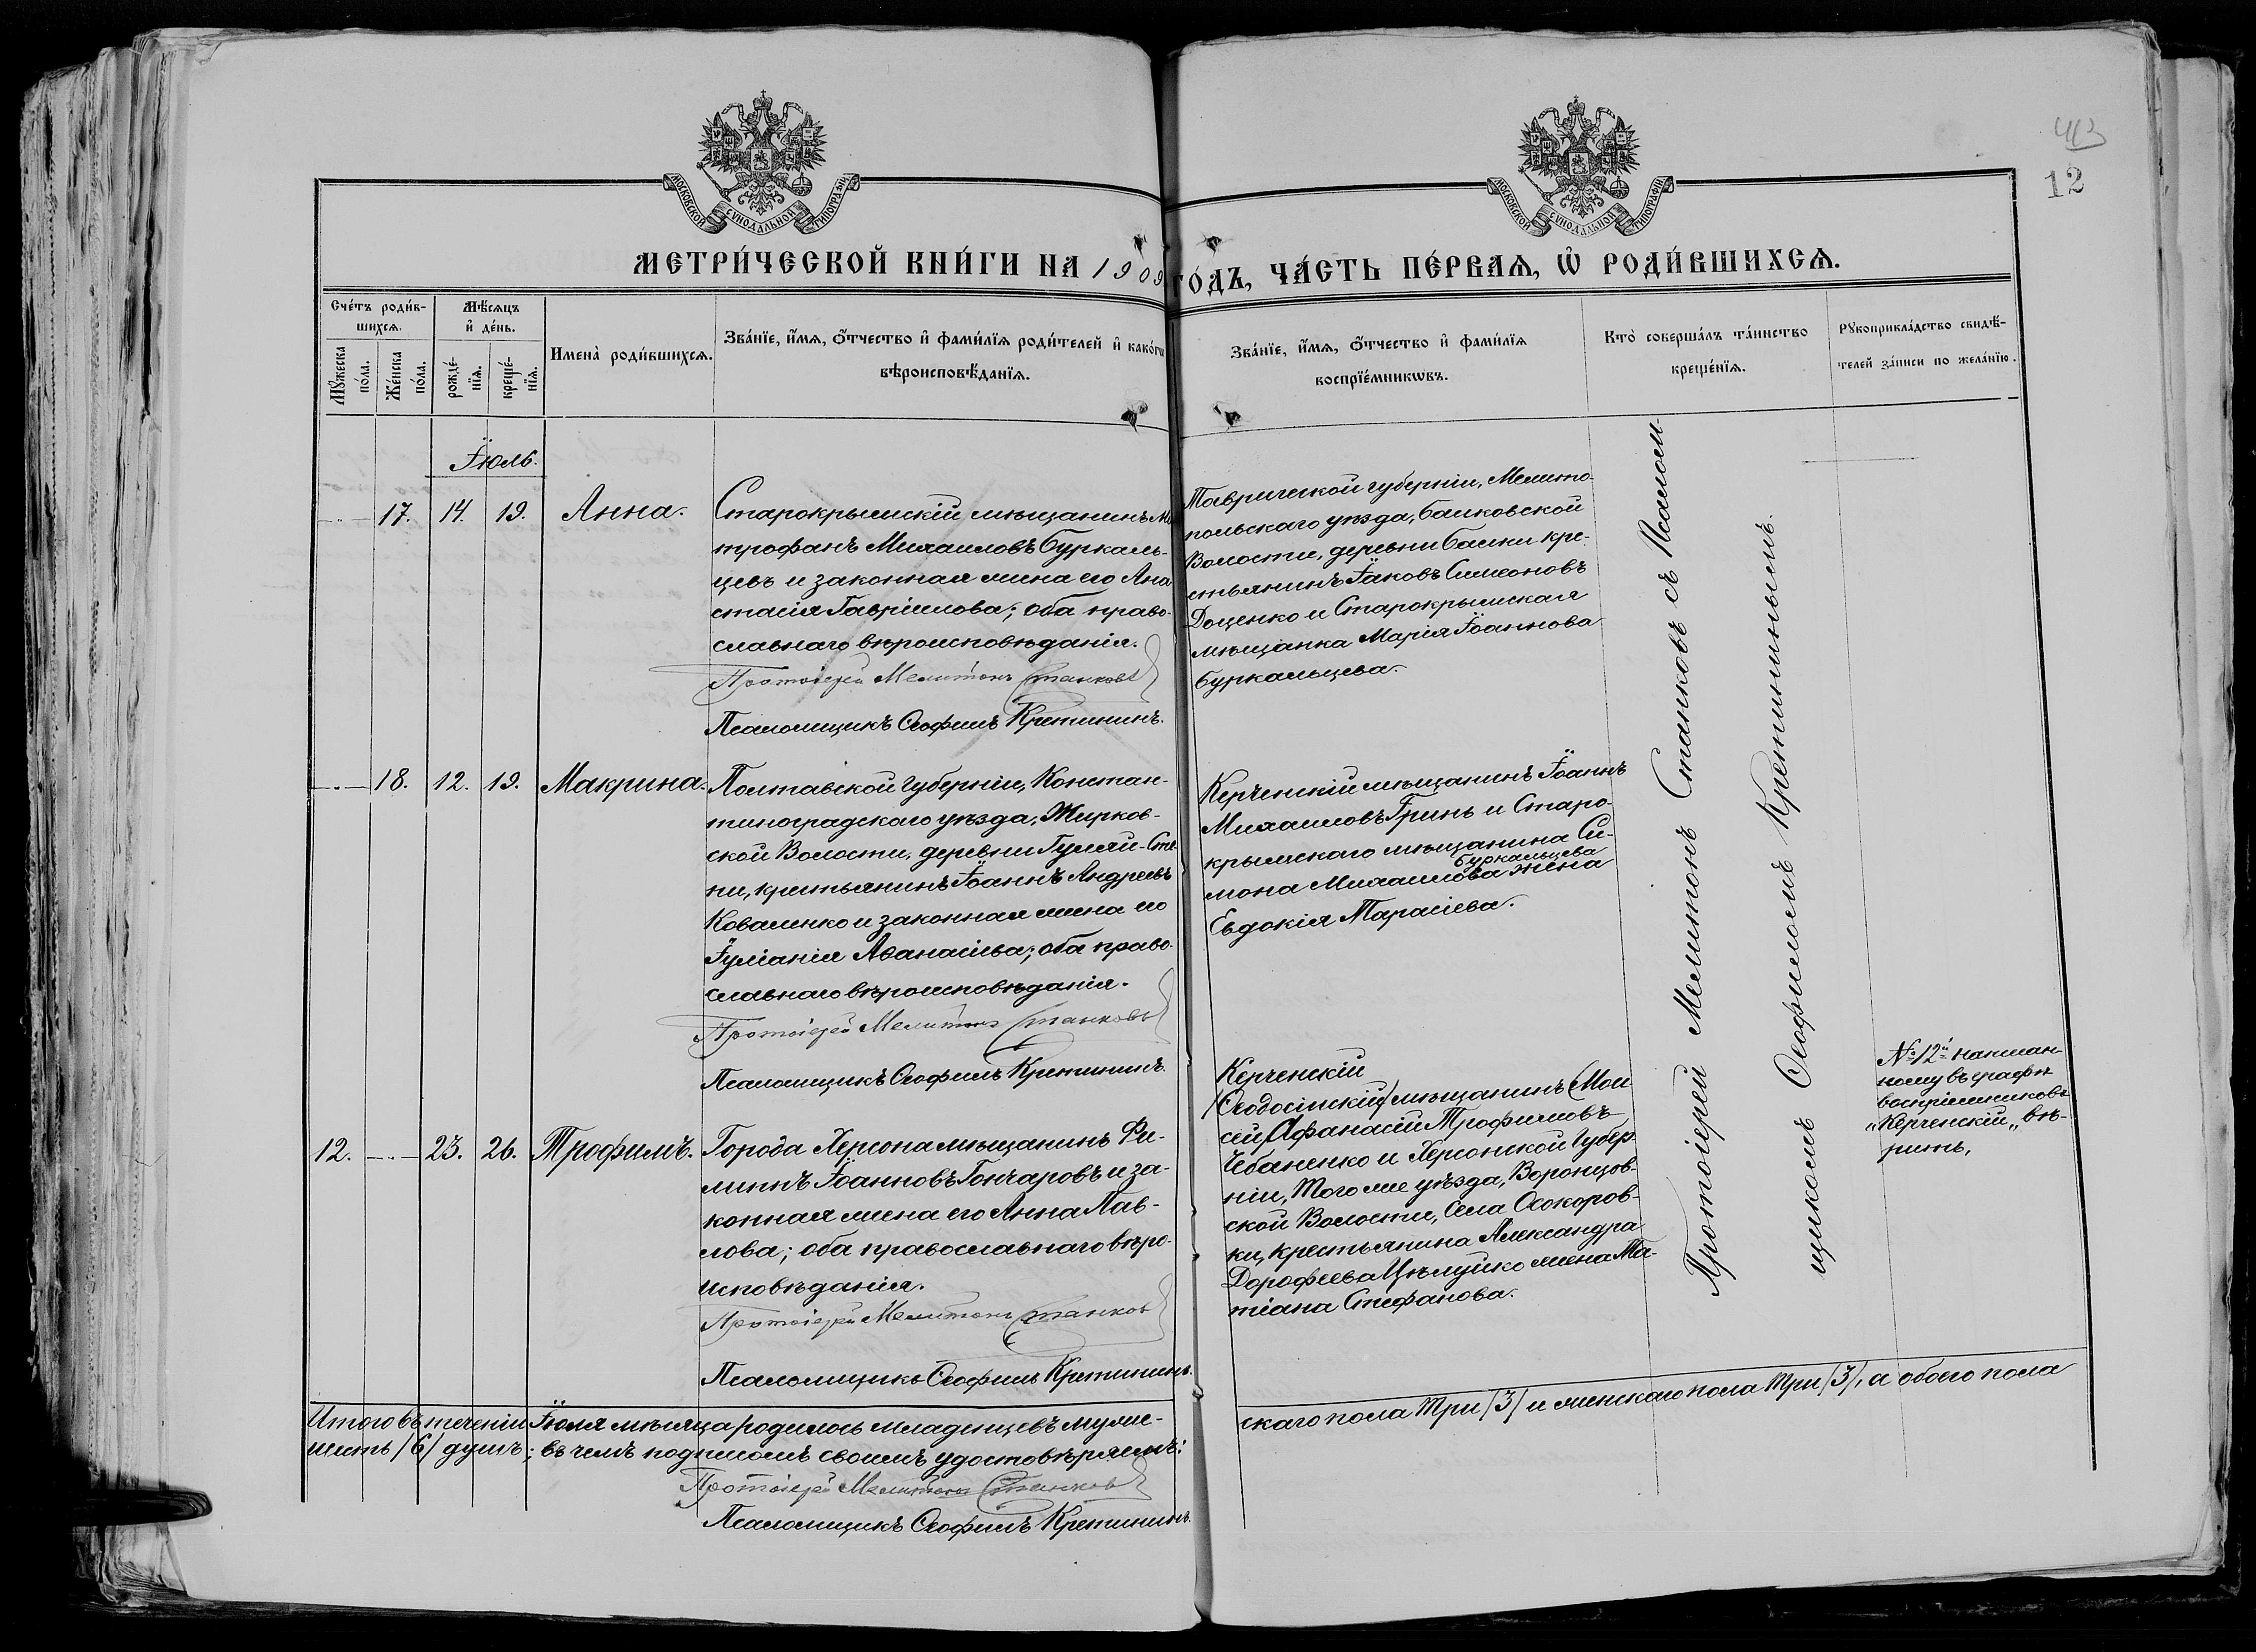 413
12
МОСКОВСКОЙ СѴНОДАЛЬНОЙ ТИПОГРАФІИ
МОСКОВСКОЙ СѴНОДАЛЬНОЙ ТИПОГРАФІИ
МЕТРИ́ЧЕСКОЙ КНИ́ГИ НА 1909 ГО́ДЪ, ЧА́СТЬ ПЕ́РВАѦ, Ѡ҆ РОДИ́ВШИХСѦ.
Сче́тъ роди́в-
шихсѧ.
Мѣ́сѧцъ
и҆ де́нь.
Мꙋжеска по́ла.
Же́нска по́ла.
рожде́-
нїѧ.
креще́-
нїѧ.
Имена̀ роди́вшихсѧ.
Зва́нїе, и҆́мѧ, ѻ҆́тчество и҆ фами́лїѧ роди́телей и҆ како́гѡ
вѣроисповѣ́данїѧ.
Зва́нїе, и҆́мѧ, ѻ҆́тчество и҆ фами́лїѧ
воспрїе́мникѡвъ.
Кто̀ соверша́лъ та́инство
креще́нїѧ.
Рꙋкоприкла́дство свидѣ́-
телей за́писи по жела́нїю.
Іюль.
17. 14. 19. Анна.
Старокрымскій мѣщанинъ Ми
трофанъ Михаиловъ Буркаль-
цевъ и законная жена его Ана
стасія Гавріилова; оба право-
славнаго вѣроисповѣданія.
Протоіерей Мелитонъ Станковъ
Псаломщикъ Ѳеофилъ Кретининъ.
Таврической губерніи, Мелито-
польскаго уѣзда, Балковской
Волости, деревни Балки кре-
стьянинъ Іаковъ Симеоновъ
Доценко и Старокрымская
мѣщанка Марія Іоаннова
Буркальцева.
18. 12. 19. Макрина.
Полтавской Губерніи, Констан-
тиноградскаго уѣзда, Жирков-
ской Волости, деревни Гуляй-Сте
пи, крестьянинъ Іоаннъ Андреевъ
Коваленко и законная жена его
Іуліанія Аѳанасіева; оба право-
славнаго вѣроисповѣданія.
Протоіерей Мелитонъ Станковъ
Псаломщикъ Ѳеофилъ Кретининъ.
Керченскій мѣщанинъ Іоаннъ
Михаиловъ Гринь и Старо-
крымскаго мѣщанина Си-
Буркальцева
мона Михаилова жена
Евдокія Тарасіева.
12. 23. 26. Трофимъ.
Города Херсона мѣщанинъ Фи-
липпъ Іоанновъ Гончаровъ и за-
конная жена его Анна Пав-
лова; оба православнаго вѣро-
исповѣданія.
Протоіерей Мелитонъ Станковъ
Псаломщикъ Ѳеофилъ Кретининъ.
Керченскій
(Ѳеодосійскій) мѣщанинъ (Мои
сей) Афанасій Трофимовъ
Чебаненко и Херсонской Губер-
ніи, Того же уѣзда, Воронцов-
ской Волости, Села Осокоров-
ки, крестьянина Александра
Дорофеева Цѣлуйко жена Та-
тіана Стефанова.
Протоіерей Мелитонъ Станковъ съ Псалом-
щикомъ Ѳеофиломъ Кретининымъ.
№ 12й написан-
ному въ графѣ
воспріемниковъ
"Керченскій" вѣ-
рить,
Итого въ теченіи Іюля мѣсяца родилось младенцевъ муже-
скаго пола Три /3/ и женскаго пола Три /3/, а обоего пола
шесть /6/ душъ; въ чемъ подписомъ своимъ удостовѣряемъ:
Протоіерей Мелитонъ Станковъ
Псаломщикъ Ѳеофилъ Кретининъ.